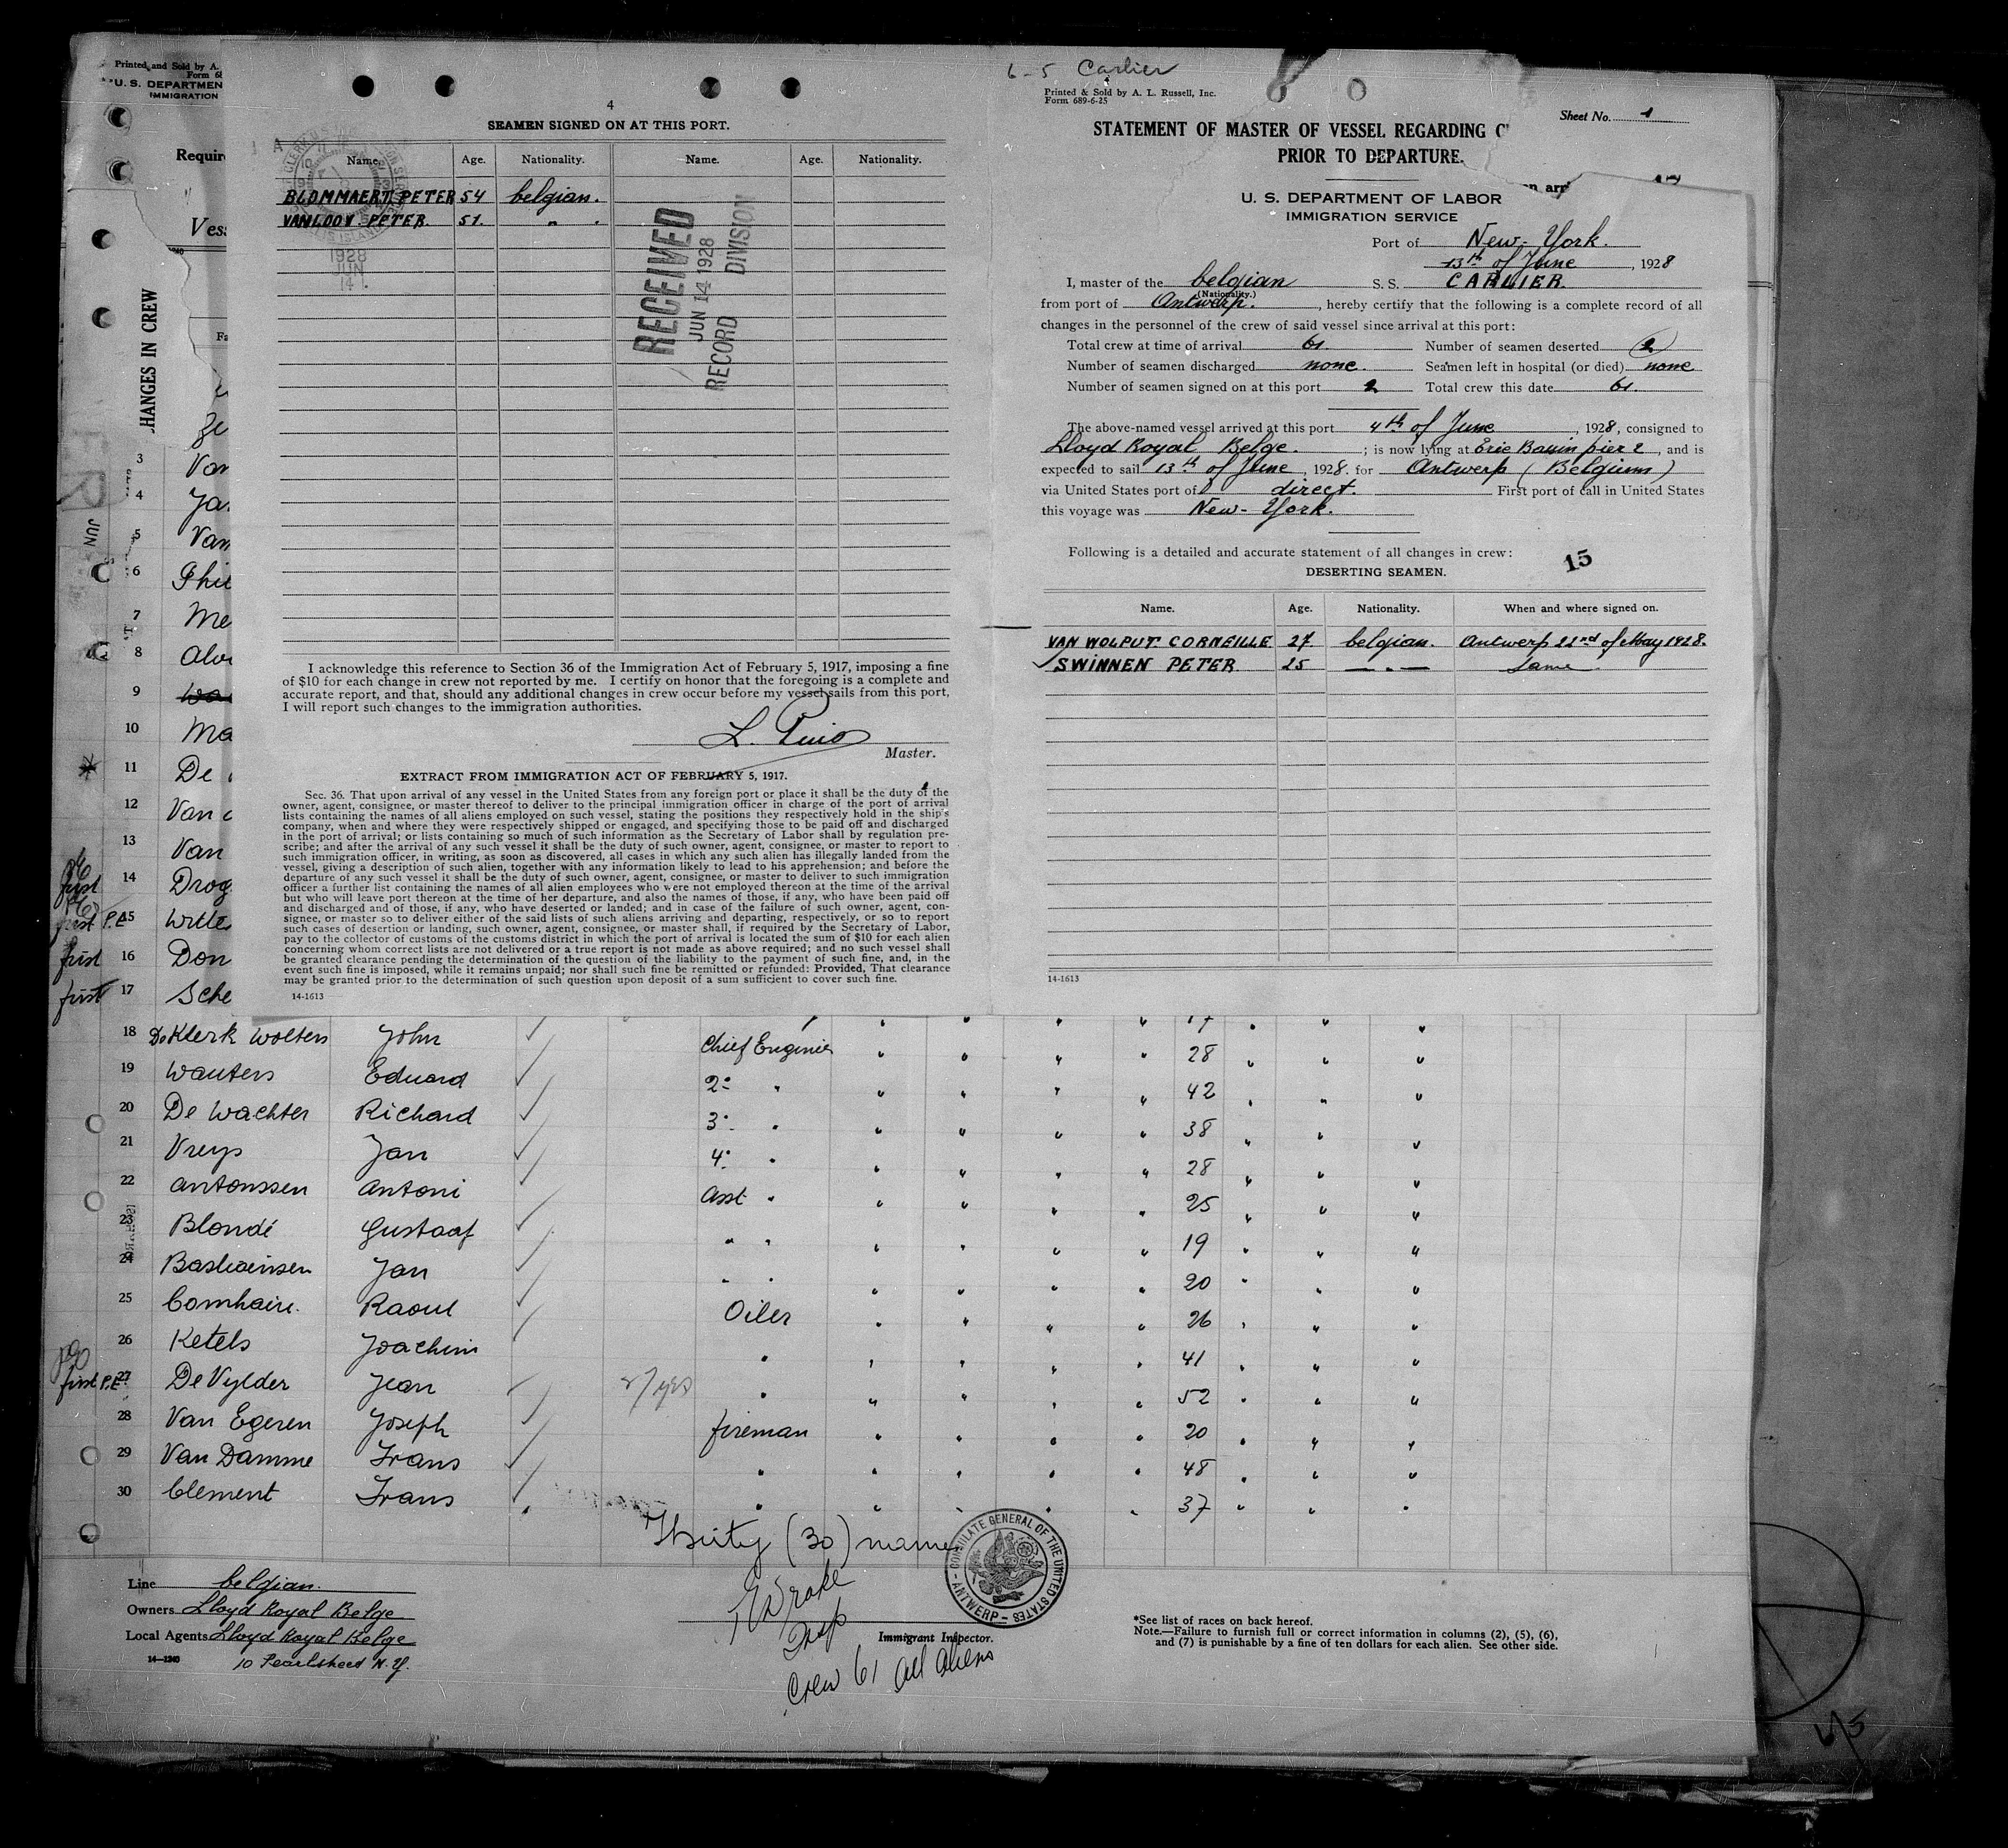 Printed and Sold by A.
Form 68
U. S. DEPARTMEN
IMMIGRATION
Requir
Vess
HANGES IN CREW
4
SEAMEN SIGNED ON AT THIS PORT.
Name. Age. Nationality. Name. Age. Nationality.
BLOMMAERT PETER 54 belgian.
VANLOOY PETER. 51. " "
1928
JUN
14
RECEIVED
JUN 14 1928
RECORD DIVISION
I acknowledge this reference to Section 36 of the Immigration Act of February 5, 1917, imposing a fine
of $10 for each change in crew not reported by me. I certify on honor that the foregoing is a complete and
accurate report, and that, should any additional changes in crew occur before my vessel sails from this port,
I will report such changes to the immigration authorities.
Master.
EXTRACT FROM IMMIGRATION ACT OF FEBRUARY 5, 1917.
Sec. 36. That upon arrival of any vessel in the United States from any foreign port or place it shall be the duty of the
owner, agent, consignee, or master thereof to deliver to the principal immigration officer in charge of the port of arrival
lists containing the names of all aliens employed on such vessel, stating the positions they respectively hold in the ship's
company, when and where they were respectively shipped or engaged, and specifying those to be paid off and discharged
in the port of arrival; or lists containing so much of such information as the Secretary of Labor shall by regulation pre-
scribe; and after the arrival of any such vessel it shall be the duty of such owner, agent, consignee, or master to report to
such immigration officer, in writing, as soon as discovered, all cases in which any such alien has illegally landed from the
vessel, giving a description of such alien, together with any information likely to lead to his apprehension; and before the
departure of any such vessel it shall be the duty of such owner, agent, consignee, or master to deliver to such immigration
officer a further list containing the names of all alien employees who were not employed thereon at the time of the arrival
but who will leave port thereon at the time of her departure, and also the names of those, if any, who have been paid off
and discharged and of those, if any, who have deserted or landed; and in case of the failure of such owner, agent, con-
signee, or master so to deliver either of the said lists of such aliens arriving and departing, respectively, or so to report
such cases of desertion or landing, such owner, agent, consignee, or master shall, if required by the Secretary of Labor,
pay to the collector of customs of the customs district in which the port of arrival is located the sum of $10 for each alien
concerning whom correct lists are not delivered or a true report is not made as above required; and no such vessel shall
be granted clearance pending the determination of the question of the liability to the payment of such fine, and, in the
event such fine is imposed, while it remains unpaid; nor shall such fine be remitted or refunded: Provided, That clearance
may be granted prior to the determination of such question upon deposit of a sum sufficient to cover such fine.
14-1613
6-5 Carlier
Printed & Sold by A. L. Russell, Inc.
Form 689-6-25
Sheet No. 1
STATEMENT OF MASTER OF VESSEL REGARDING C
PRIOR TO DEPARTURE.
U. S. DEPARTMENT OF LABOR
IMMIGRATION SERVICE
Port of New-York.
13th of June, 1928
I, master of the belgian S. S. CARLIER.
(Nationality.)
from port of Antwerp., hereby certify that the following is a complete record of all
changes in the personnel of the crew of said vessel since arrival at this port:
Total crew at time of arrival 61. Number of seamen deserted 2
Number of seamen discharged none. Seamen left in hospital (or died) none
Number of seamen signed on at this port 2 Total crew this date 61.
The above-named vessel arrived at this port 4th of June, 1928, consigned to
Lloyd Royal Belge.; is now lying at Erie Bassin pier 2, and is
expected to sail 13th of June, 1928. for Antwerp (Belgium)
via United States port of direct. First port of call in United States
this voyage was New-York.
Following is a detailed and accurate statement of all changes in crew:
15
DESERTING SEAMEN.
Name. Age. Nationality. When and where signed on.
VAN WOLPUT CORNEILLE 27. belgian. Antwerp 22nd of May 1928.
SWINNEN PETER 25 — " — Same.
14-1613
3 Van
4 Jan
5 Van
6 Phil
7 Me
8 Alo
9
10 Ma
11 De
12 Van
13 Van
first 14 Drog
first P.E 15 Witte
first 16 Don
first 17 Sche
18 De Klerk Wolters John Chief Enginier 28
19 Wauters Eduard 2° " 42
20 De Wachter Richard 3° " 38
21 Vreys Jan 4° " 28
22 Antonssen Antoni Asst " 25
23 Blondé Gustaaf " " 19
24 Bastiaensen Jan " " 20
25 Comhaire. Raoul Oiler 26
26 Ketels Joachim " 41
first P.E. 27 De Vylder Jean 2/yrs " 52
28 Van Egeren Joseph fireman 20
29 Van Damme Frans " 48
30 Clement Frans " 37
Thirty (30) names
CONSULATE GENERAL OF THE UNITED STATES - ANTWERP -
Insp
Immigrant Inspector.
Crew 61 all aliens
Line belgian.
Owners Lloyd Royal Belge
Local Agents Lloyd Royal Belge
14-1240 10 Pearlstreet N.Y.
*See list of races on back hereof.
Note.—Failure to furnish full or correct information in columns (2), (5), (6),
and (7) is punishable by a fine of ten dollars for each alien. See other side.
6/5